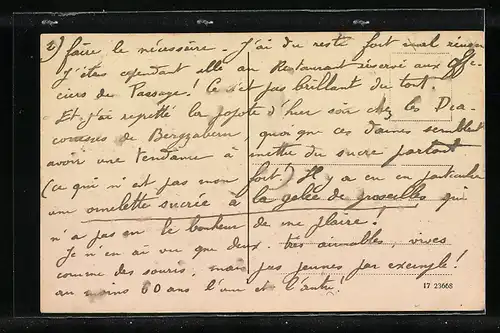 2) faire le nécessaire – J'ai du reste fort mal
J'étais cependant allé au Restaurant réservé aux Offi-
ciers de Passage! Ce n'est pas brillant du tout.
Et j'ai regretté la popote d'hier soir chez les Dia-
conesses de Bergzabern quoi que ces dames semblent
avoir une tendance à mettre du sucre partout
(ce qui n'est pas mon fort!) Il y a eu en particulier
une omelette sucrée à la gelée de groseilles qui
n'a pas eu le bonheur de me plaire!
Je n'en ai vu que deux. très aimables, vives
comme des souris, mais pas jeunes par exemple!
au moins 60 ans l'une et l'autre!
17 23668